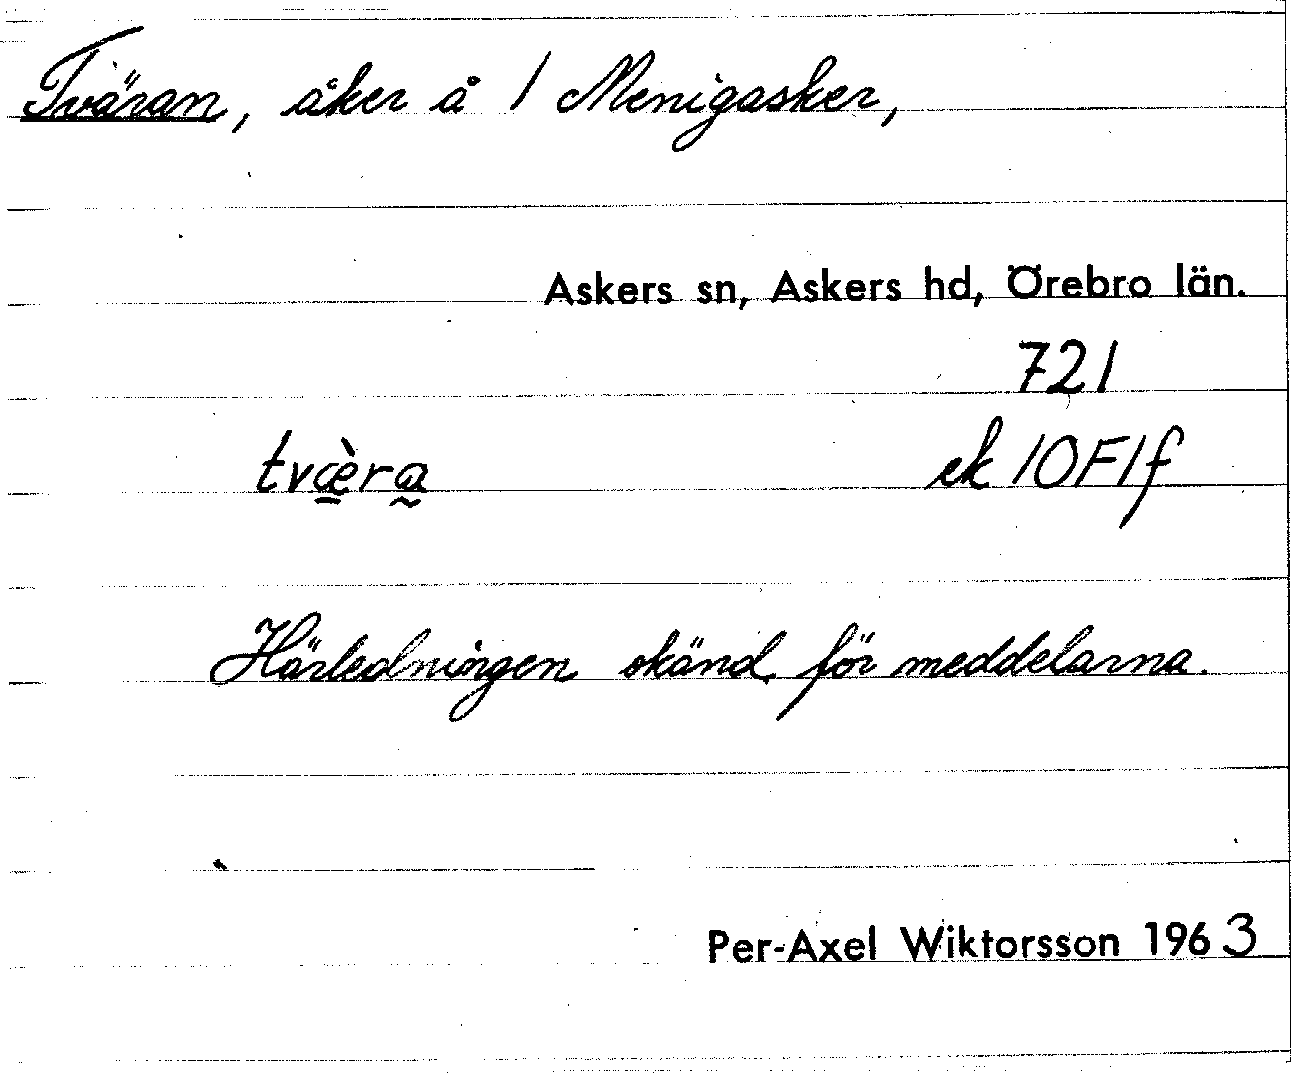 Tväran, åker å 1 Menigasker,
Askers sn, Askers hd, Örebro län.
721
tvæ̀ra ek 10F1f
Härledningen okänd för meddelarna.
Per-Axel Wiktorsson 1963